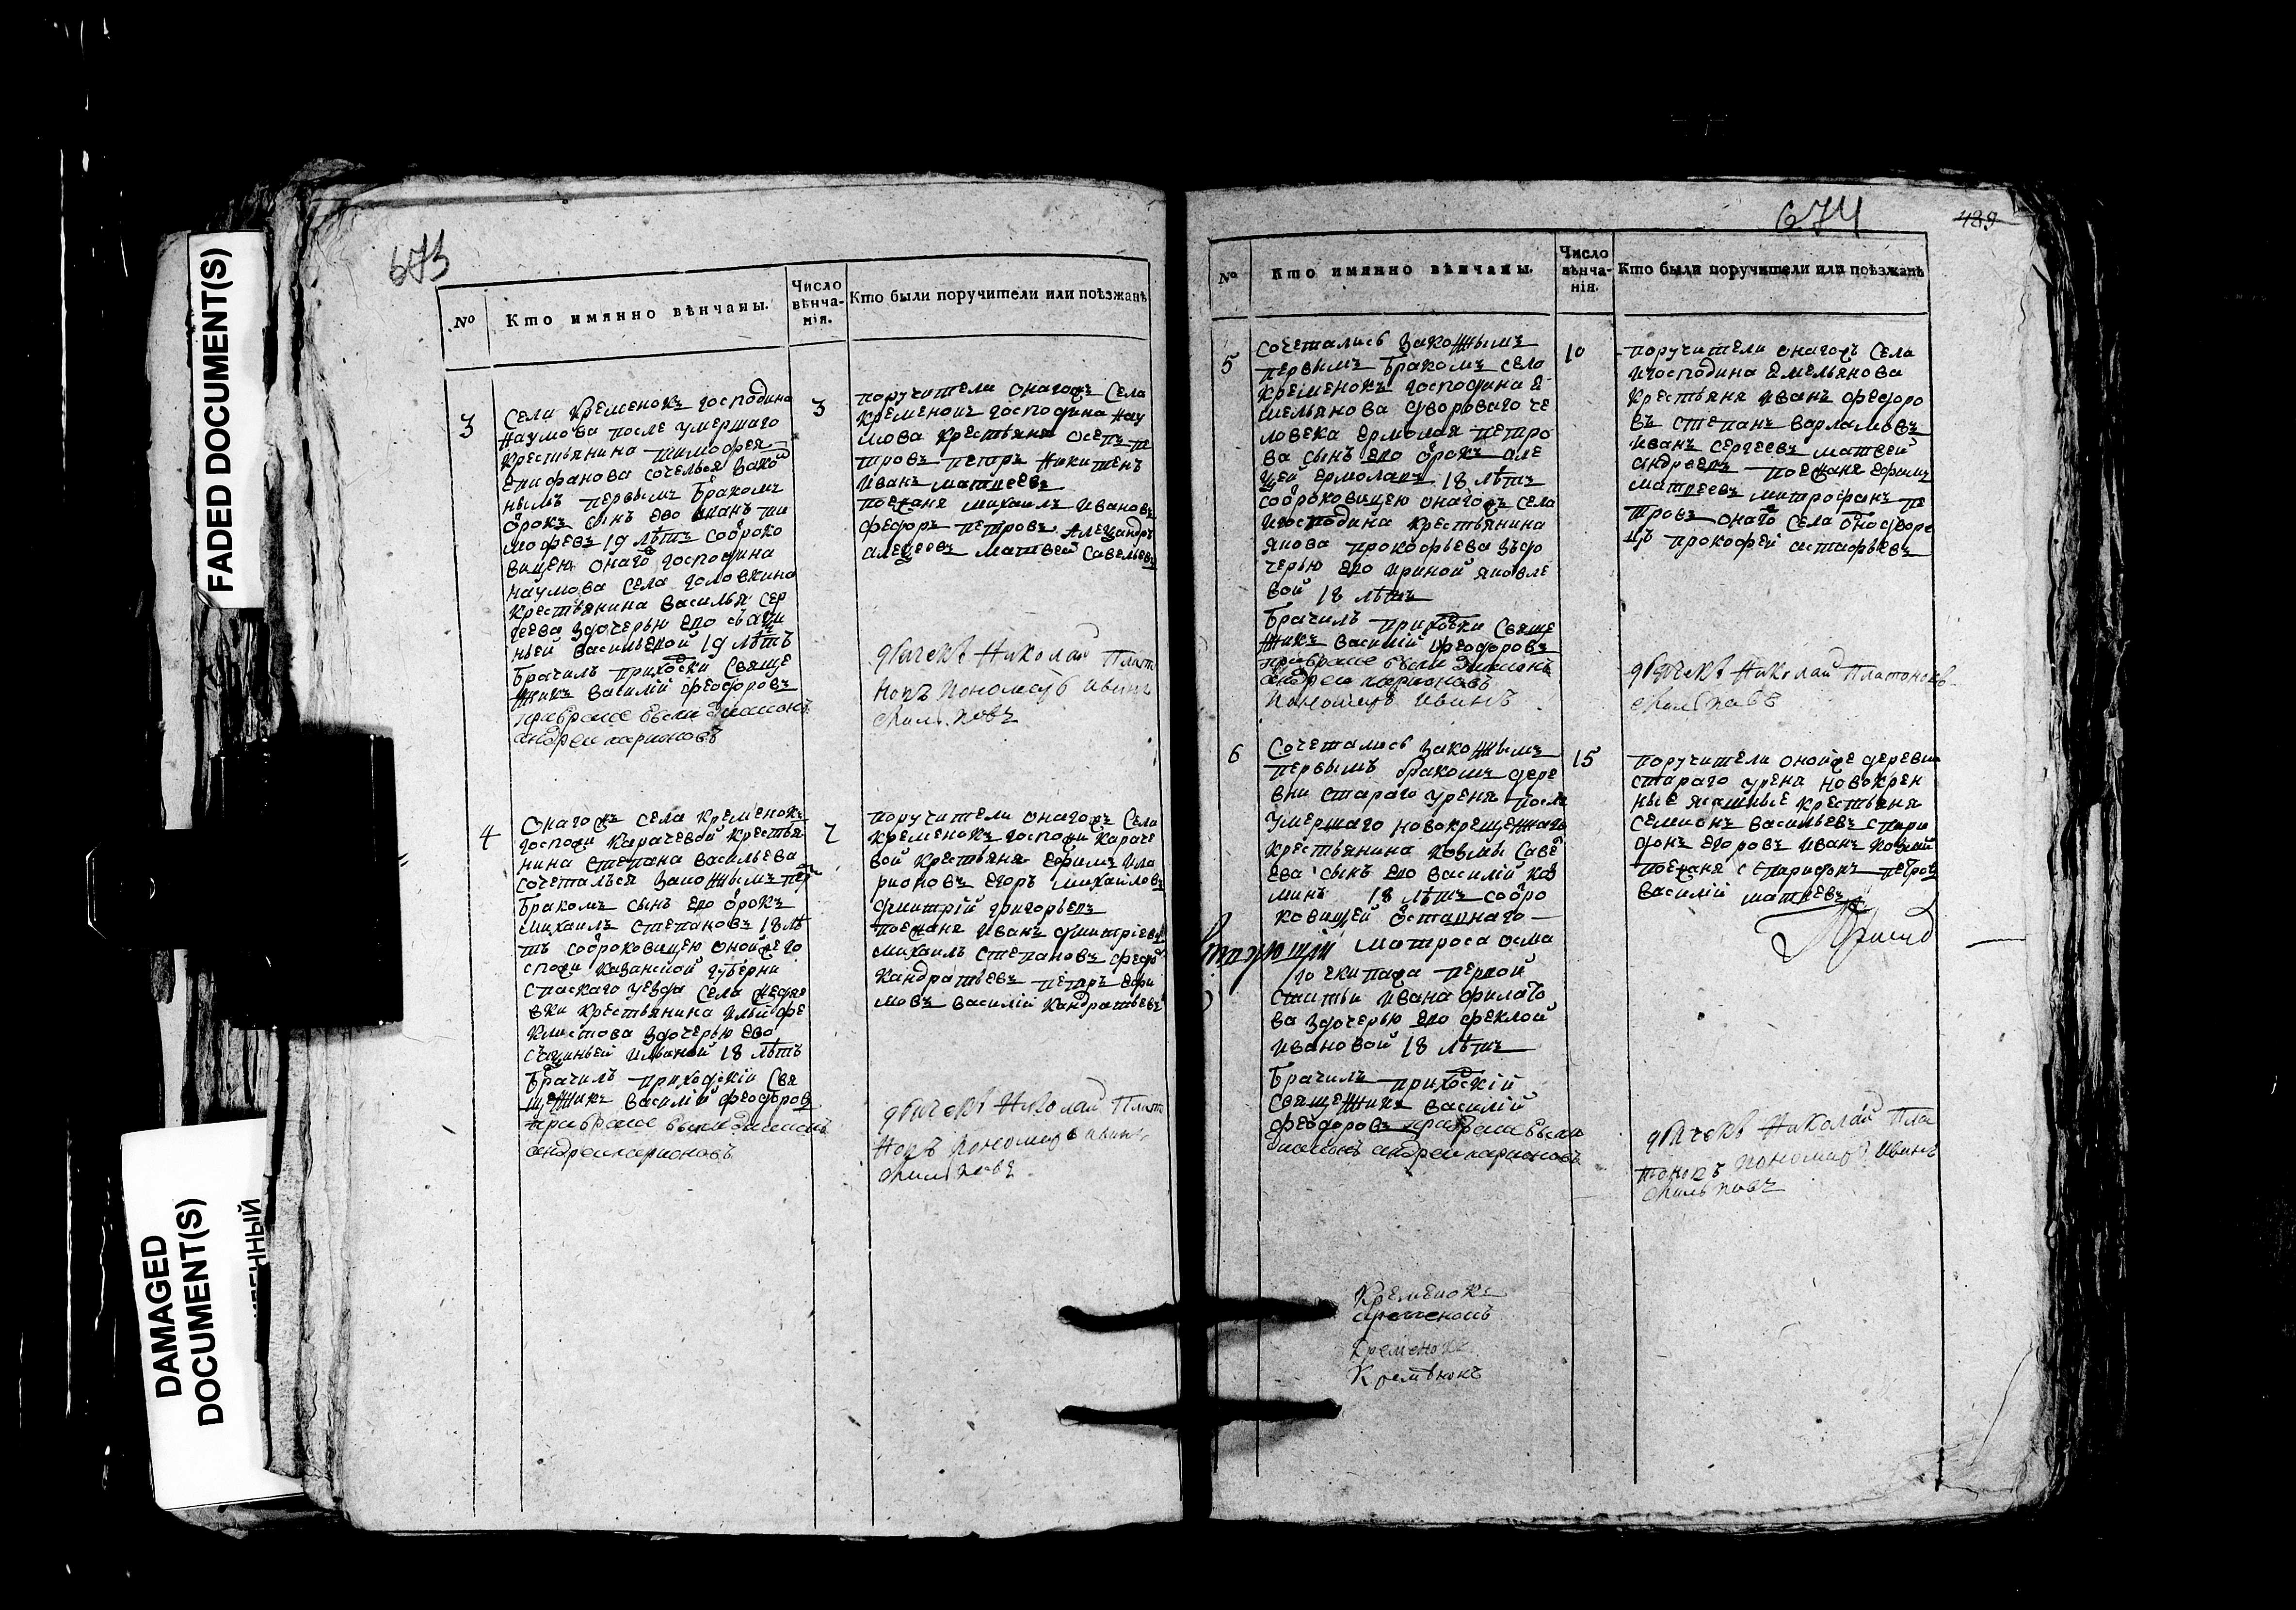 FADED DOCUMENT(S)
DAMAGED
DOCUMENT(S)
673
№
Кто имянно вѣнчаны.
Число
вѣнча-
нія.
Кто были поручители или поѣзжанѣ
3
Села Кременокъ господина
Наумова после умершаго
крестьянина тимофея
Епифанова сочелься зако
нымъ первымъ бракомъ
отрокъ сынъ ево иванъ ти
мофеевъ 19 лѣтъ сотроко
вицею онаго господина
наумова села головкина
крестьянина василья сер
геева здочерью его
ньей васильевой 19 лѣтъ
Брачилъ приходски Свяще
нникъ василій феодоровъ
при браке были диаконъ
андреи ларионовъ
3
поручители онагожъ Села
Кременокъ господина Нау
мова крестьяня осепъ пе
тровъ петръ никитенъ
иванъ матвеевъ
поезжаня михаилъ ивановъ
федоръ петровъ Александръ
алексеевъ матвей савельевъ
дьячекъ Николай Плато
новъ пономарь иванъ
4
Онагожъ села Кременокъ
госпожи Карачевой крестья
нина Степана Васильева
сочеталься законнымъ пер
бракомъ сынъ его отрокъ
михаилъ степановъ 18 лѣ
тъ сотроковицею оной же го
спожи казанской губерни
спаскаго уезда села
вки крестьянина ильи фе
клистова здочерью ево
ильиной 18 лѣтъ
Брачилъ приходскіи Свя
щенникъ василій феодоровъ
при браке были диаконъ
андреи ларионовъ
7
поручители онагожъ Села
кременокъ госпожи караче
вой крестьяня ефимъ ила
рионовъ егоръ михайловъ
дмитрій григорьевъ
поезжаня иванъ дмитріевъ
михаилъ степановъ федоръ
кандратьевъ петръ ефи
мовъ василій кандратьевъ
дьячекъ Николай Плато
новъ пономарь иванъ
674
489
№
Кто имянно вѣнчаны.
Число
вѣнча-
нія.
Кто были поручители или поѣзжанѣ
5
сочетались законнымъ
первымъ бракомъ села
кременокъ господина е
мельянова дворового че
ловека ермолая петро
ва сынъ его отрокъ але
ксей ермолаевъ 18 лѣтъ
сотроковицею онагожъ села
игосподина крестьянина
якова прокофьева здо
черью его ириной яковле
вой 18 лѣтъ
Брачилъ приходски Свяще
нникъ василій феодоровъ
при браке были диаконъ
андреи ларионовъ
пономарь иванъ
10
поручители онагожъ Села
игосподина емельянова
крестьяня иванъ федоро
въ степанъ варламовъ
иванъ сергеевъ матвей
андреевъ поезжаня ефимъ
матвеевъ митрофанъ пе
тровъ онаго села однодворе
цъ прокофей астафьевъ
дьячекъ Николай Платоновъ
6
Сочетались законнымъ
первымъ бракомъ дере
вни стараго уреня после
умершаго новокрещеннаго
крестьянина козмы саве
ева сынъ его василій коз
минъ 18 лѣтъ сотро
ковицей отставнаго
матроса осма
го екипажа первой
статьи ивана филато
ва здочерью его феклой
ивановой 18 лѣтъ
Брачилъ приходскій
священникъ василій
феодоровъ при браке были
диаконъ андреи ларионовъ
15
поручители онойже деревни
стараго уреня новокрен
ные ясашные крестьяня
семионъ васильевъ спири
донъ егоровъ иванъ козмин
поезжаня спиридонъ петров
василій матвеевъ
дьячекъ Николай Пла
тоновъ пономарь иванъ
Кременокъ
кременокъ
Кременокъ
Кременокъ